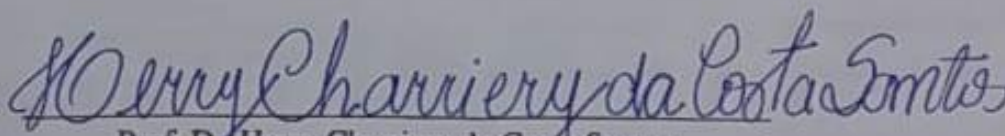 Herry Charriery da Costa Santos
Prof. Dr. Herry Charriery da Costa Santos